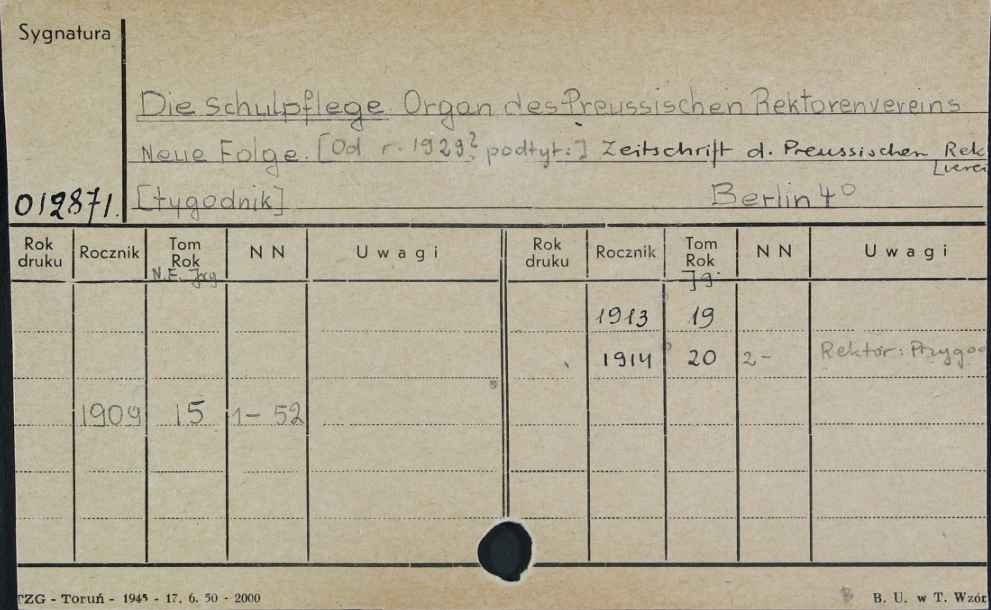 Sygnatura
Die Schulpflege. Organ des Preussischen Rektorenvereins
Neue Folge. [Od r. 1929? podtyt:] Zeitschrift d. Preussischen Rek
[verei
012871. [tygodnik] Berlin 4°
Rok druku Rocznik Tom Rok NN Uwagi Rok druku Rocznik Tom Rok NN Uwagi
N.F. Jrg Jg.
1913 19
1914 20 2- Rektor: Przygo
1909 15 1-52
TZG - Toruń - 1945 - 17. 6. 50 - 2000 B. U. w T. Wzór